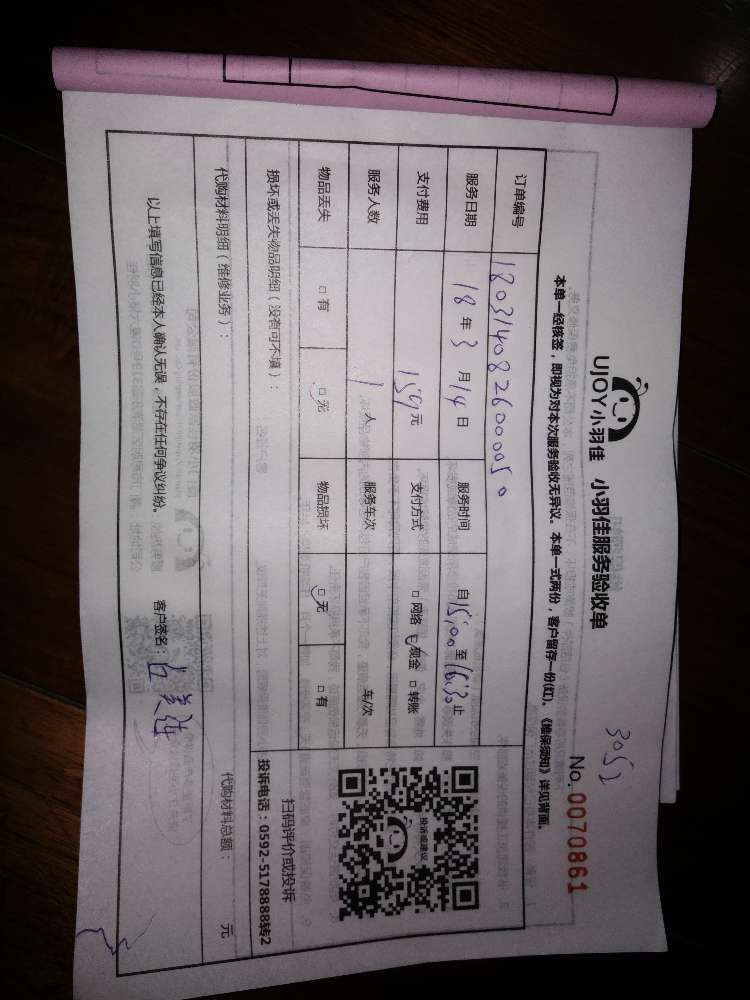 3052
UJOY小羽佳 小羽佳服务验收单
No. 0070861
本单一经核签，即视为对本次服务验收无异议。本单一式两份，客户留存一份(红)。《维保须知》详见背面。
订单编号 180314082600050
服务日期 18年3月14日 服务时间 自15:00至16:30止
支付费用 159元 支付方式 □网络 □现金 □转账
服务人数 1人 服务车次 车/次
物品丢失 □有 □无 物品损坏 □无 □有
投诉或建议
扫码评价或投诉
投诉电话：0592-5178888转2
损坏或丢失物品明细（没有可不填）：
代购材料明细（维修业务）： 代购材料总额： 元
以上填写信息已经本人确认无误，不存在任何争议纠纷。 客户签名：